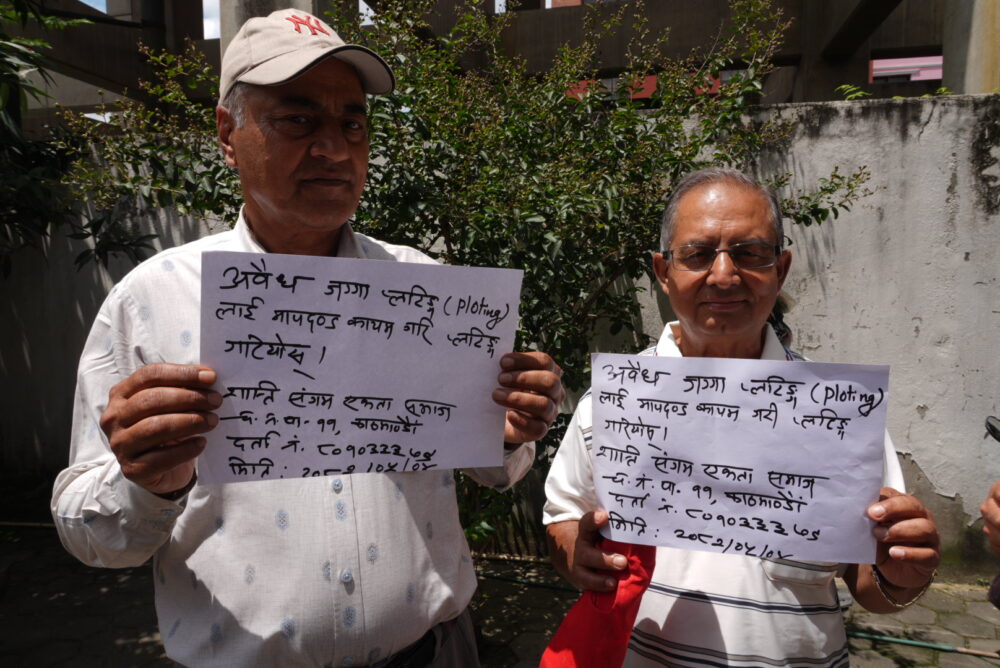 NY
अवैध जग्गा प्लटिङ्ग (Ploting)
लाई मापदण्ड कायम गरि प्लटिङ्ग
गरियोस् ।
शान्ति संगम एकता समाज
च. न. पा. ११, काठमाण्डौं
दर्ता नं. ८०९०३३३७५
मिति : २०८२/०४/०४
अवैध जग्गा प्लटिङ्ग (ploting)
लाई मापदण्ड कायम गरी प्लटिङ्ग
गरियोस् ।
शान्ति संगम एकता समाज
च. न. पा. ११, काठमाण्डौं
दर्ता नं. ८०९०३३३७५
मिति : २०८२/०४/०४